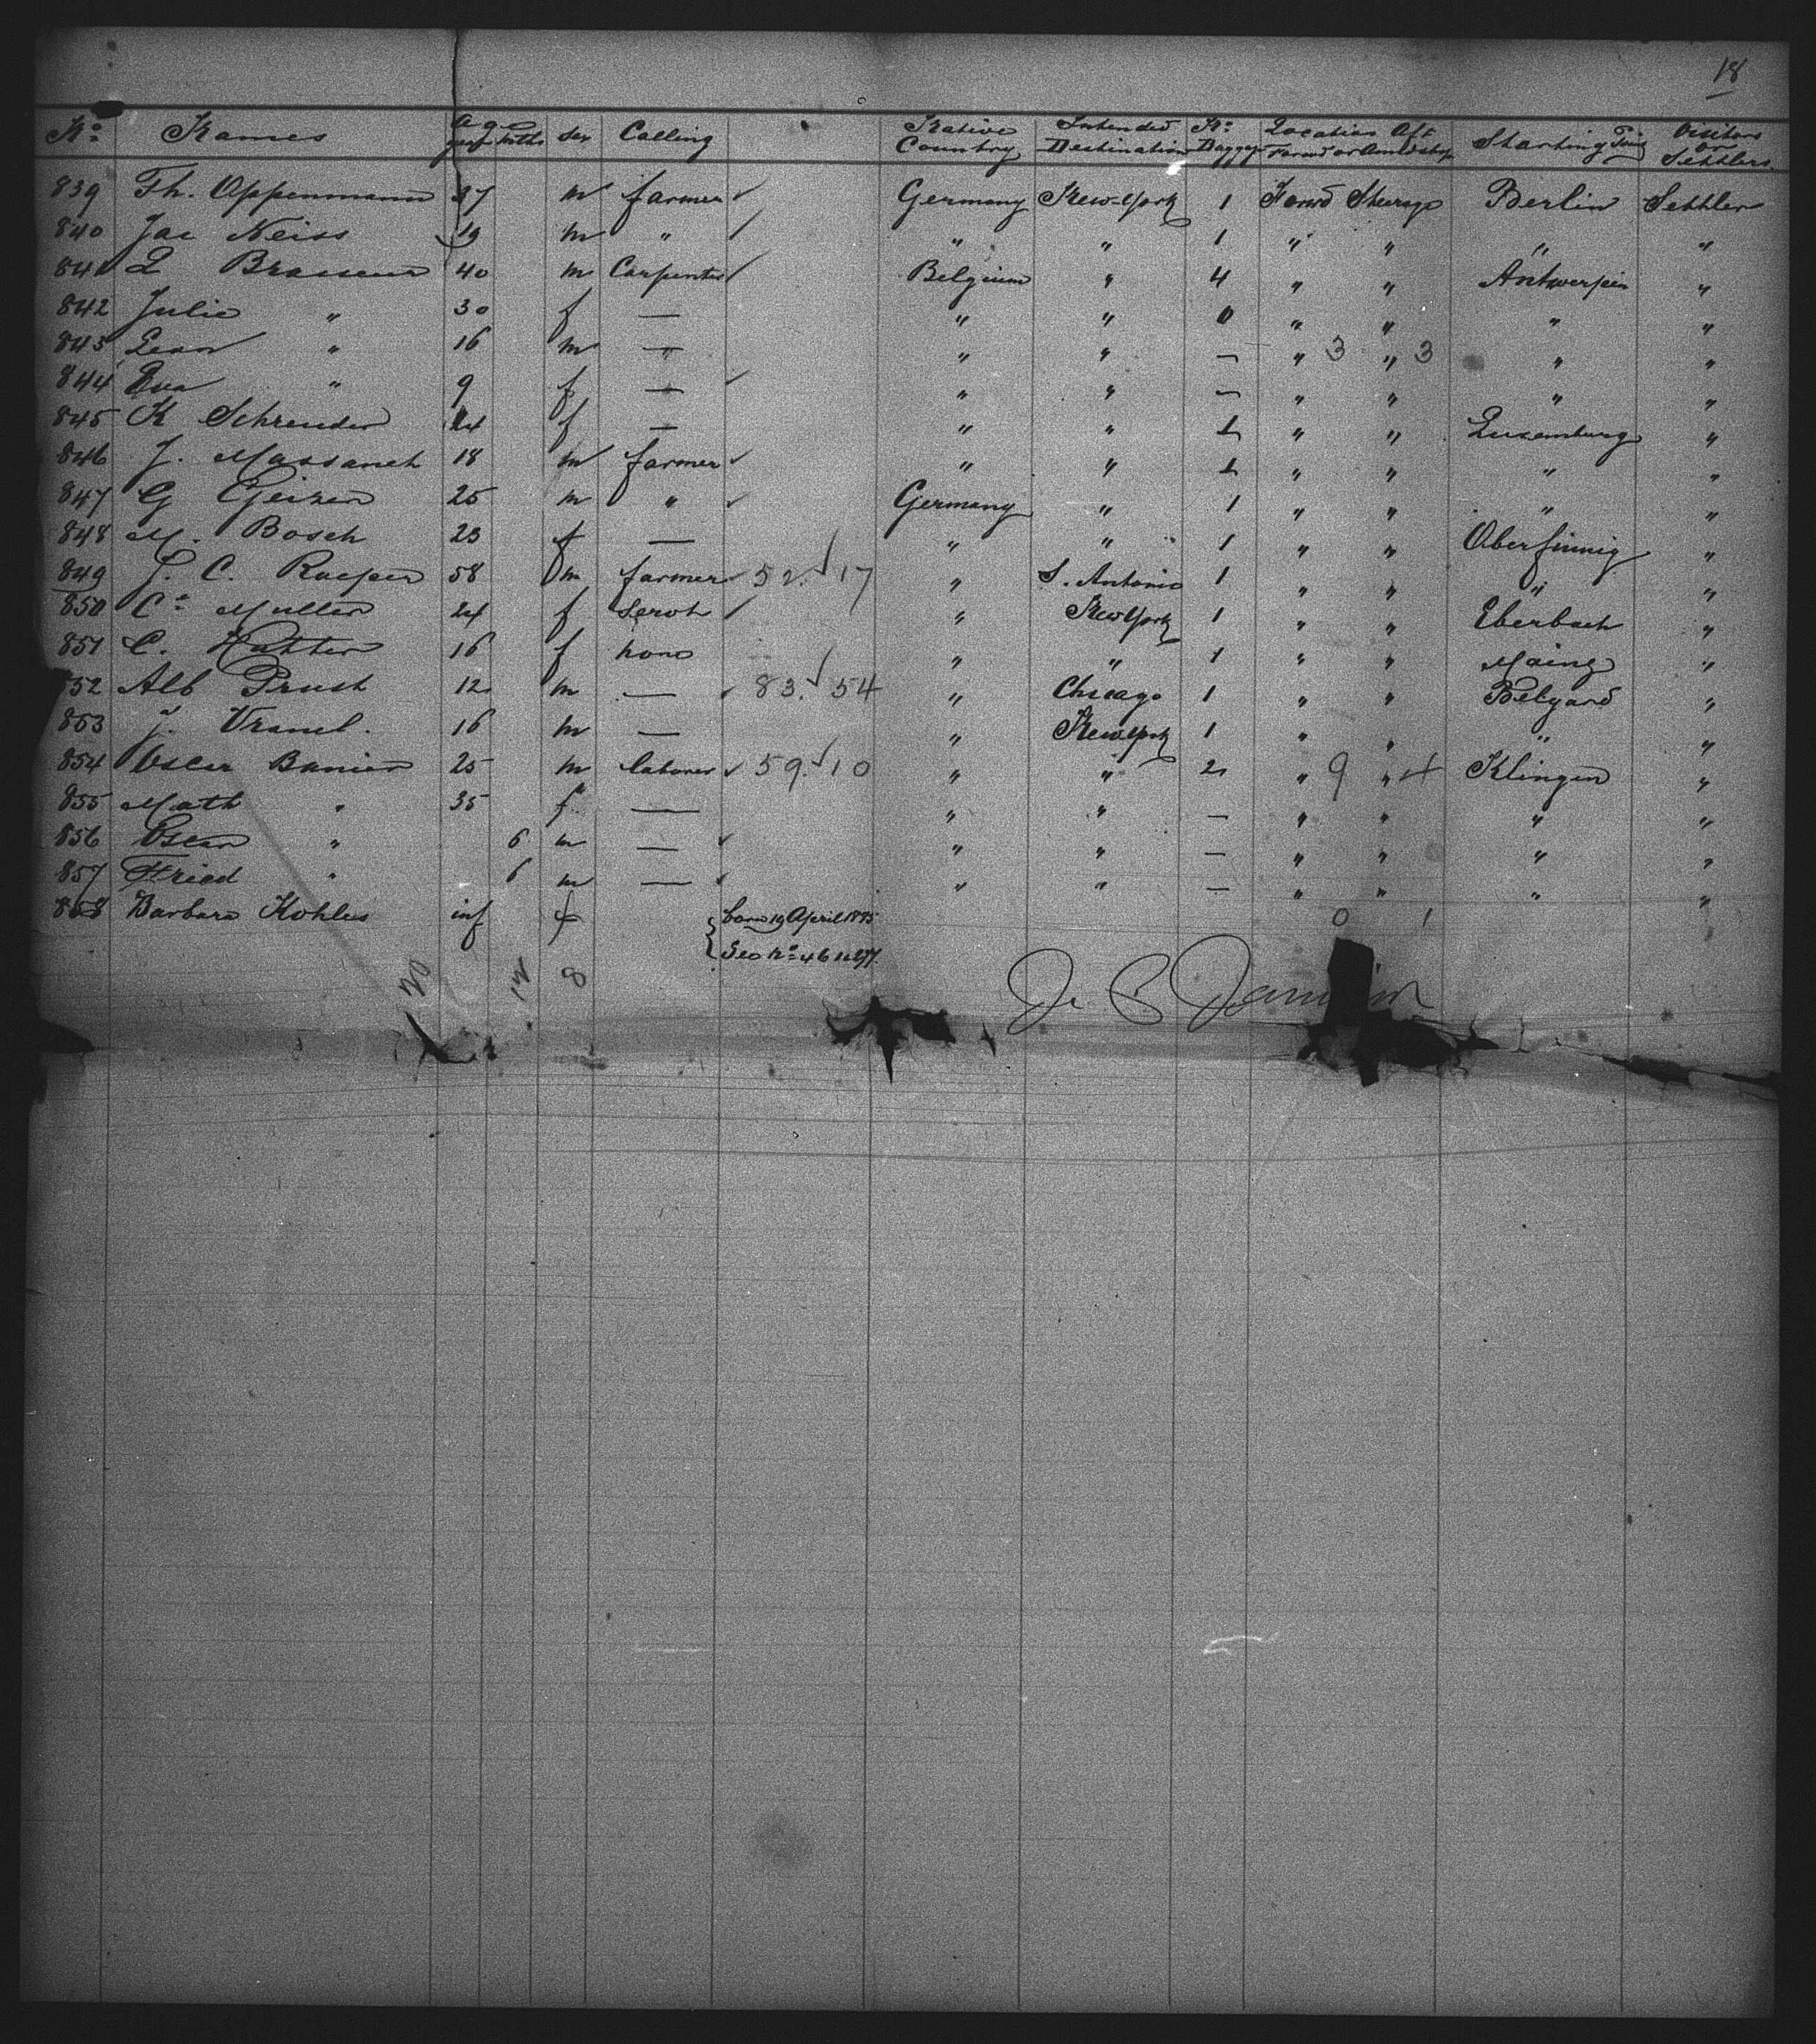 18
No Names Age years mths Sex Calling Native Country Intended Destination No Baggage Location Aft Forwd or Amidship Starting Point Visitors or Settlers
839 Th. Oppenmann 37 m farmer Germany New-York 1 Forwd Steerage Berlin Settler
840 Jac Neiss 19 m " " " 1 " " " "
841 L Brasseur 40 m Carpenter Belgium " 4 " " Antwerpen "
842 Julie " 30 f — " " 0 " " " "
843 Leon " 16 m — " " — " 3 " 3 " "
844 Eva " 9 f — " " — " " " "
845 K Schreuder 24 f — " " 1 " " Luxemburg "
846 J. Massaneh 18 m farmer " " 1 " " " "
847 G Geizen 25 m " Germany " 1 " " " "
848 M. Bosch 23 f — " " 1 " " Oberfinnig "
849 J. C. Raeper 58 m farmer 52. 17 " S. Antonio 1 " " " "
850 Ca Muller 24 f Servt " New York 1 " " Eberbach "
851 C. Hutter 16 f none " " 1 " " Mainz "
852 Alb Prust 12 m — 83. 54 " Chicago 1 " " Belgard "
853 J. Vranel. 16 m — " New York 1 " " " "
854 Oscar Banier 25 m laborer 59. 10 " " 2 " 9 " 4 Klingen "
855 Math " 35 f — " " — " " " "
856 Oscar " 6 m — " " — " " " "
857 Fried " 6 m — " " — " " " "
858 Barbara Kohles inf f born 19 April 1885 0 1
See No 461
20 12 8